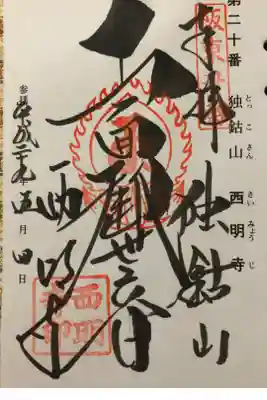 第二十番 独鈷山 西明寺
とっこさん さいみょうじ
坂東
奉拝 独鈷山
十一面観世音
西明寺
参拝 平成二十九年五月四日
西明
寺印